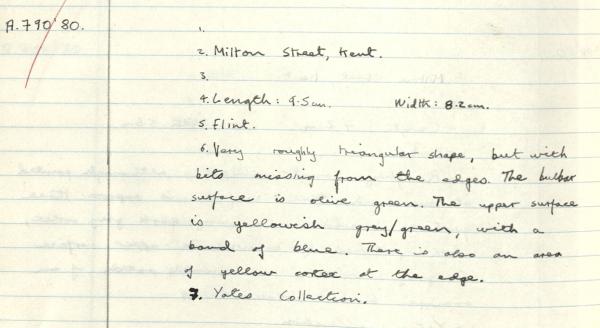 A.790'80.
1.
2. Milton Street, Kent.
3.
4. Length: 9.5cm. Width: 8.2cm.
5. Flint.
6. Very roughly triangular shape, but with
bits missing from the edges. The bulbar
surface is olive green. The upper surface
is yellowish grey/green, with a
band of blue. There is also an area
of yellow cortex at the edge.
7. Yates Collection.